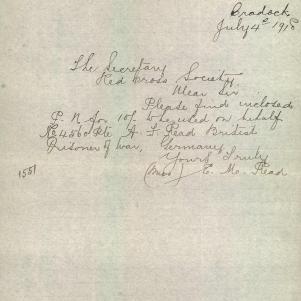 Cradock
July 4th 1918
The Secretary
Red Cross Society
Dear Sir
Please find inclosed
P. N. for 10/- to be used on behalf
Pte A. F. Read British
Prisoner of War, Germany
Yours Truly
(Miss) E. M. Read
1551